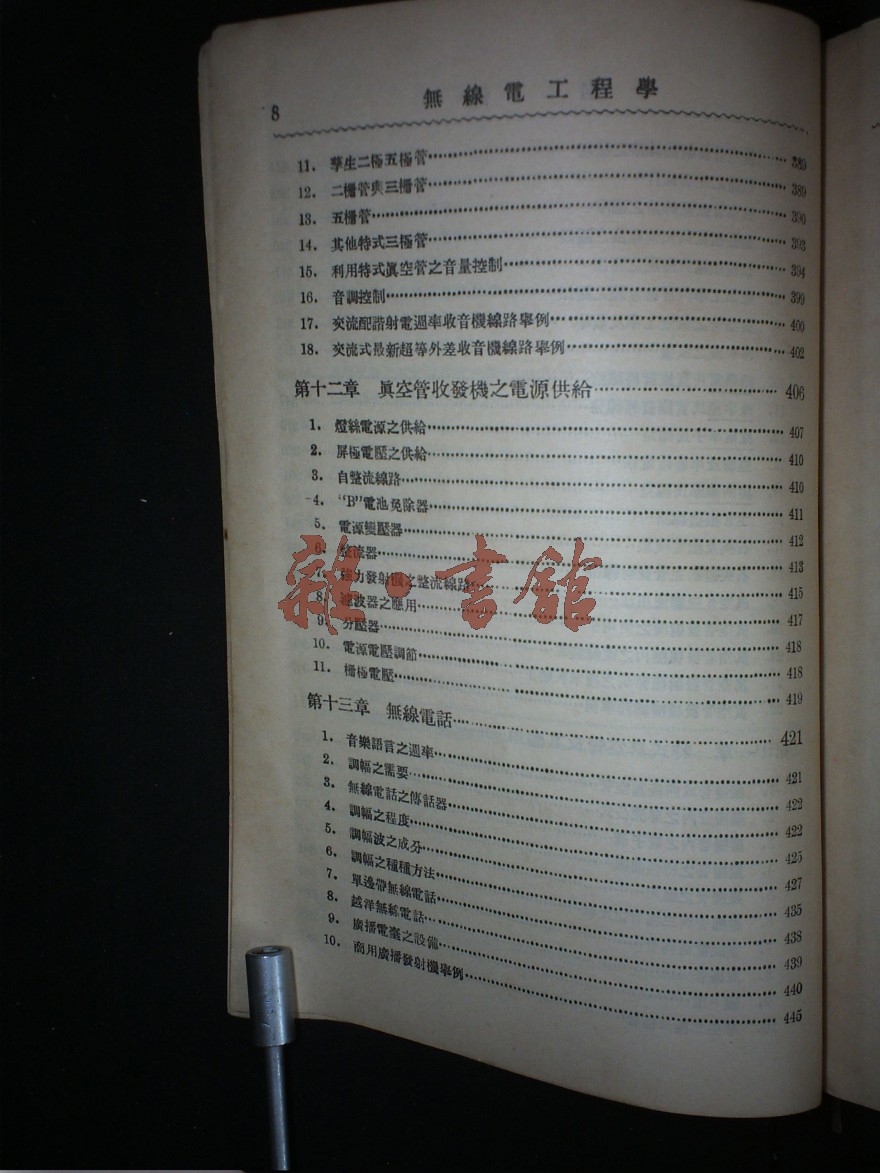 8
無線電工程學
11. 孿生二極五極管 389
12. 二柵管與三柵管 389
13. 五柵管 390
14. 其他特式三極管 393
15. 利用特式眞空管之音量控制 394
16. 音調控制 399
17. 交流配諧射電週率收音機線路舉例 400
18. 交流式最新超等外差收音機線路舉例 402
第十二章 眞空管收發機之電源供給 406
1. 燈絲電源之供給 407
2. 屏極電壓之供給 410
3. 自整流線路 410
4. “B”電池免除器 411
5. 電源變壓器 412
6. 整流器 413
7. 強力發射機之整流線路 415
8. 濾波器之應用 417
9. 分壓器 418
10. 電源電壓調節 418
11. 柵極電壓 419
第十三章 無線電話 421
1. 音樂語言之週率 421
2. 調幅之需要 422
3. 無線電話之傳話器 422
4. 調幅之程度 425
5. 調幅波之成分 427
6. 調幅之種種方法 435
7. 單邊帶無線電話 438
8. 越洋無線電話 439
9. 廣播電臺之設備 440
10. 商用廣播發射機舉例 445
雜·書館